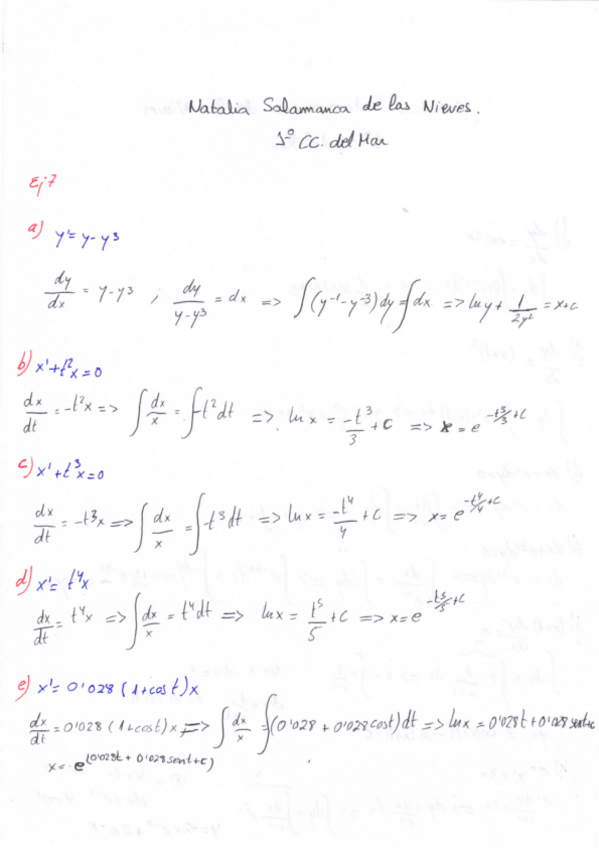 Natalia Salamanca de las Nieves.
1º CC. del Mar
Ej 7
a) y' = y - y³
dy/dx = y - y³ ; dy/(y - y³) = dx => ∫(y⁻¹ - y⁻³)dy = ∫dx => ln y + 1/(2y²) = x + c
b) x' + t²x = 0
dx/dt = -t²x => ∫dx/x = ∫-t²dt => ln x = -t³/3 + c => x = e^(-t³/3 + c)
c) x' + t³x = 0
dx/dt = -t³x => ∫dx/x = ∫-t³dt => ln x = -t⁴/4 + c => x = e^(-t⁴/4 + c)
d) x' = t⁴x
dx/dt = t⁴x => ∫dx/x = t⁴dt => ln x = t⁵/5 + c => x = e^(-t⁵/5 + c)
e) x' = 0'028 (1 + cos t) x
dx/dt = 0'028 (1 + cos t) x => ∫dx/x = ∫(0'028 + 0'028 cos t) dt => ln x = 0'028t + 0'028 sen t + c
x = e^(0'028t + 0'028 sen t + c)